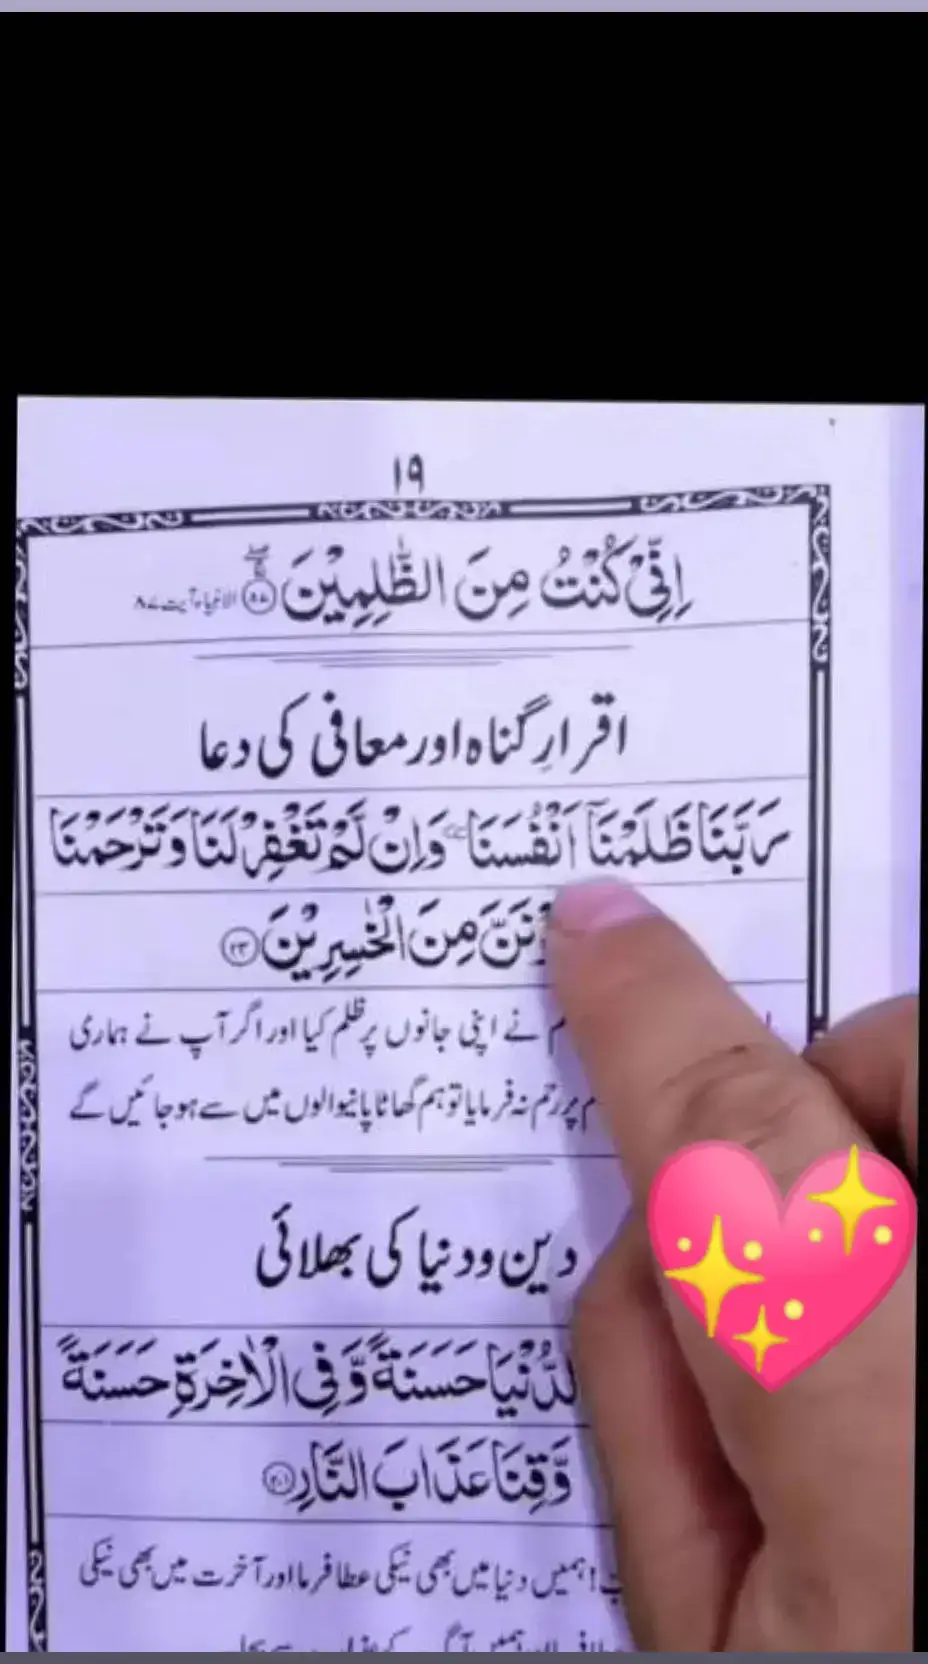 ١٩
اِنِّیْ كُنْتُ مِنَ الظّٰلِمِیْنَ ۝۸۷ الانبیاء آیت ۸۷
اقرارِ گناہ اور معافی کی دعا
رَبَّنَا ظَلَمْنَاۤ اَنْفُسَنَا وَاِنْ لَّمْ تَغْفِرْ لَنَا وَتَرْحَمْنَا
مِنَ الْخٰسِرِیْنَ ۝۲۳
نے اپنی جانوں پر ظلم کیا اور اگر آپ نے ہماری
پر رحم نہ فرمایا تو ہم گھاٹا پانیوالوں میں سے ہوجائیں گے
دین ودنیا کی بھلائی
حَسَنَةً وَّفِی الْاٰخِرَةِ حَسَنَةً
وَّقِنَا عَذَابَ النَّارِ ۝۲۰۱
ہمیں دنیا میں بھی نیکی عطا فرما اور آخرت میں بھی نیکی